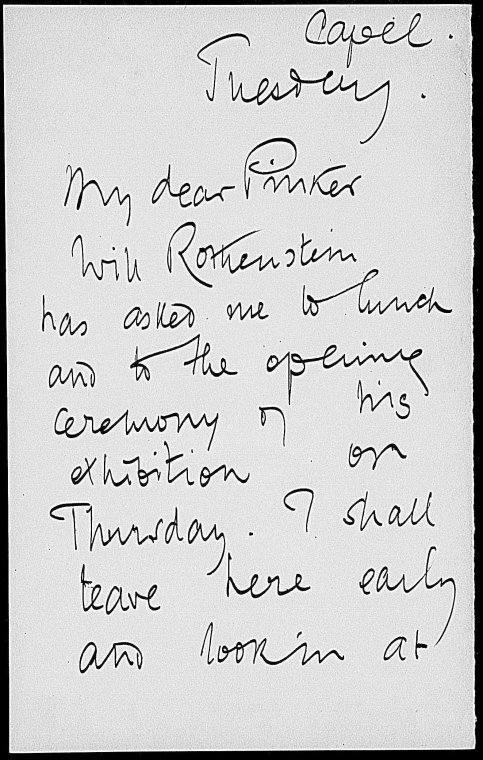 Capel.
Tuesday.
My dear Pinker
Will Rothenstein
has asked me to lunch
and to the opening
ceremony of his
exhibition on
Thursday. I shall
leave here early
and look in at